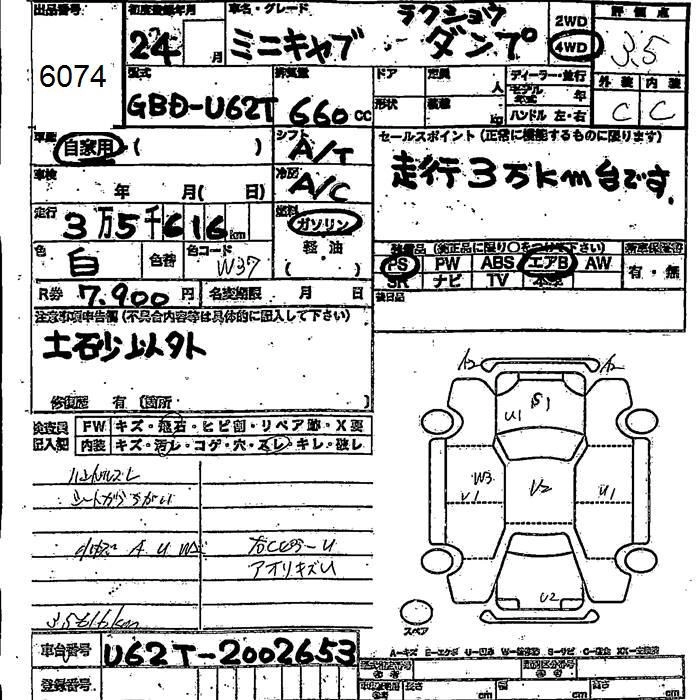 出品番号 初度登録年月 車名・グレード 2WD 評価点
6074 24 月 ミニキャブ ラクショウ ダンプ 4WD 3.5
型式 排気量 ドア 定員 人 ディーラー・並行 外装 内装
GBD-U62T 660 cc 形状 積載 kg モデル年式 年 C C
ハンドル 左・右
車歴 自家用 ( ) シフト A/T セールスポイント (正常に機能するものに限ります)
車検 年 月( 日) 冷房 A/C 走行3万km台です。
走行 3万5千616km 燃料 ガソリン
軽油
( )
色 白 色替 色コード W37 装備品 (純正品に限り○をつけて下さい) 新車保証書
PS PW ABS エアB AW 有・無
R券 7.900円 名変期限 月 日 SR ナビ TV 本革
後日品
注意事項申告欄 (不具合内容等は具体的に記入して下さい)
土砂以外
修復歴 有 (箇所 )
検査員記入記 FW キズ・飛石・ヒビ割・リペア跡・X要
内装 キズ・汚レ・コゲ・穴・スレ・キレ・破レ
A2 A2
U1 S1
W3 U1 U2 U1
U2
ハンドルスレ
A U W
アオリキズU
35616km
スペア
A-キズ E-エクボ U-凹み
車台番号 U62T-2002653
登録番号
長さ cm cm cm